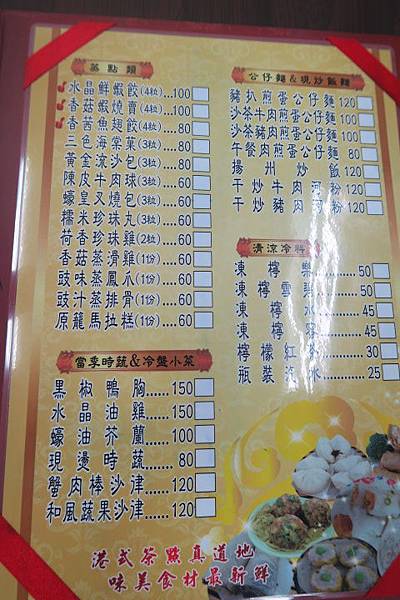 蒸點類
水晶鮮蝦餃(4粒)...100
香菇蝦燒賣(4粒)...100
香茜魚翅餃(4粒)...80
三色海棠菓(3粒)...80
黃金流沙包(3粒)...80
陳皮牛肉球(3粒)...60
蠔皇叉燒包(3粒)...60
糯米珍珠丸(3粒)...60
荷香珍珠雞(2粒)...60
香菇蒸滑雞(1份)...60
豉味蒸鳳爪(1份)...60
豉汁蒸排骨(1份)...60
原籠馬拉糕(1份)...60
當季時蔬&冷盤小菜
黑椒鴨胸......150
水晶油雞......150
蠔油芥蘭......100
現燙時蔬......80
蟹肉棒沙津......120
和風蔬果沙津......120
公仔麵&現炒飯麵
豬扒煎蛋公仔麵120
沙茶牛肉煎蛋公仔麵100
沙茶豬肉煎蛋公仔麵100
午餐肉煎蛋公仔麵80
揚州炒飯120
干炒牛肉河粉120
干炒豬肉河粉120
清涼冷
凍檸樂......50
凍檸雪碧......50
凍檸水......45
凍檸......45
檸檬紅茶......30
瓶裝汽水......25
港式茶點真道地
味美食材最新鮮